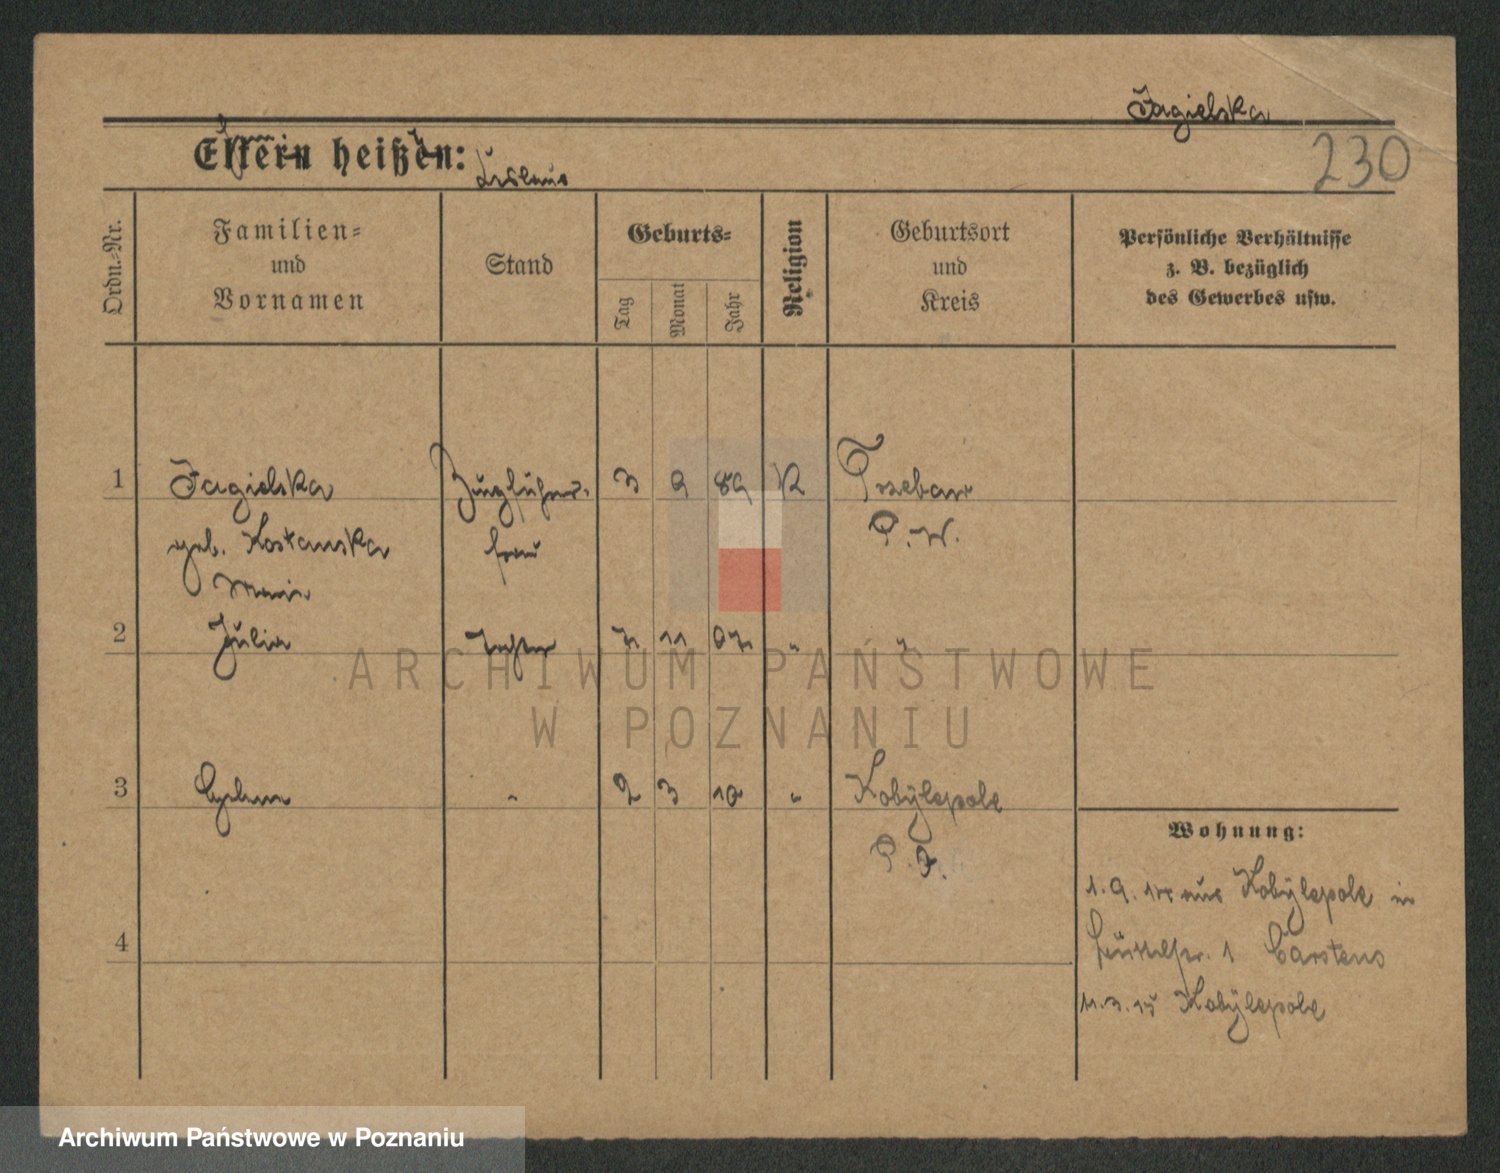 Jagielska
230
Eltern heißen:
Ordn.-Nr.
Familien-
und
Vornamen
Stand
Geburts-
Tag
Monat
Jahr
Religion
Geburtsort
und
Kreis
Persönliche Verhältnisse
z. B. bezüglich
des Gewerbes usw.
1 Jagielska Zugführers- 3 9 89 K Trzebaw
geb. Kostanska frau P. W.
Maria
2 Julia Tochter 7 11 07 " "
3 " 2 3 10 " Kobylepole
P. O.
4
Wohnung:
1. 9. 14 aus Kobylepole in
1 Carstens
11. 3. 15 Kobylepole
ARCHIWUM PAŃSTWOWE
W POZNANIU
Archiwum Państwowe w Poznaniu